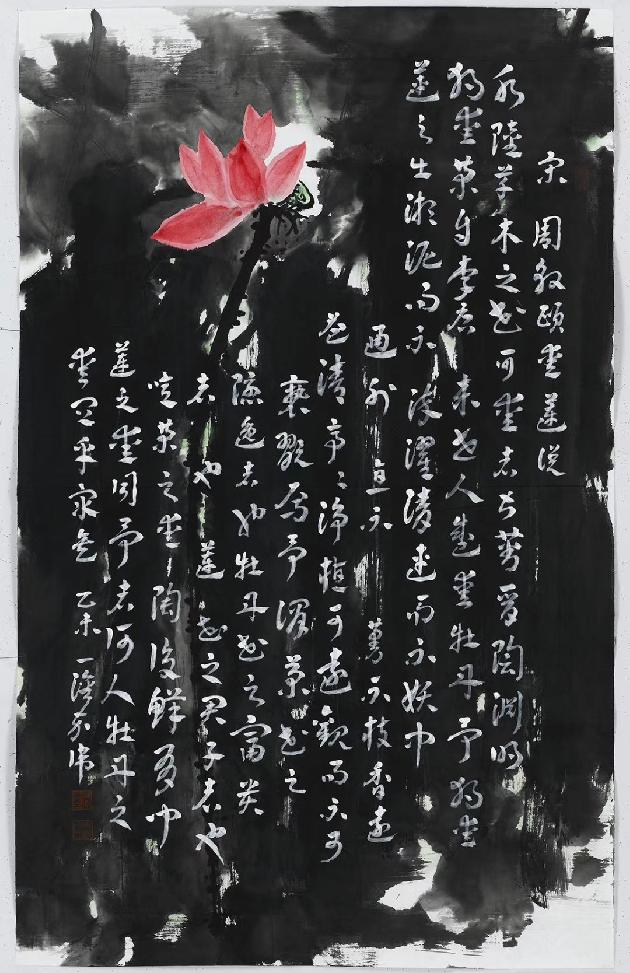 宋 周敦頤愛蓮說
水陸草木之花可愛者甚蕃晉陶淵明
獨愛菊自李唐來世人盛愛牡丹予獨愛
蓮之出淤泥而不染濯清漣而不妖中
通外直不蔓不枝香遠
益清亭亭淨植可遠觀而不可
褻翫焉予謂菊花之
隱逸者也牡丹花之富貴
者也蓮花之君子者也
噫菊之愛陶後鮮有聞
蓮之愛同予者何人牡丹之
愛宜乎衆矣 乙未